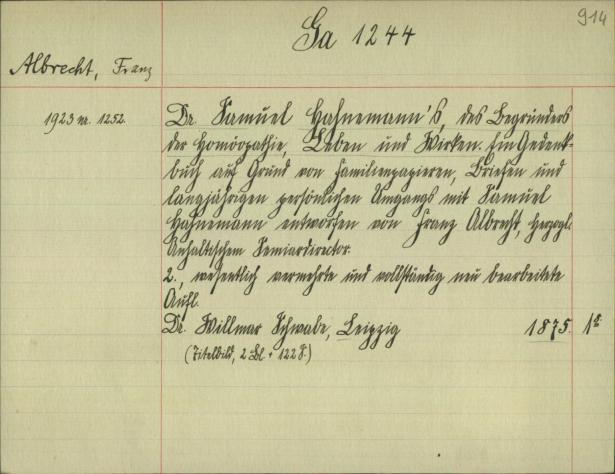 914
Ga 1244
Albrecht, Franz
1923 nr. 1252.
Dr. Samuel Hahnemann's, des Begründers
der Homöopathie, Leben und Wirken. Ein Gedenk-
buch auf Grund von Familienpapieren, Briefen und
langjährigen persönlichen Umgangs mit Samuel
Hahnemann entworfen von Franz Albrecht, herzogl.
Anhaltischem Seminardirector.
2., wesentlich vermehrte und vollständig neu bearbeitete
Aufl.
Dr. Willmar Schwabe, Leipzig 1875. 1 8°
(Titelbild, 2 Bl + 122 S.)